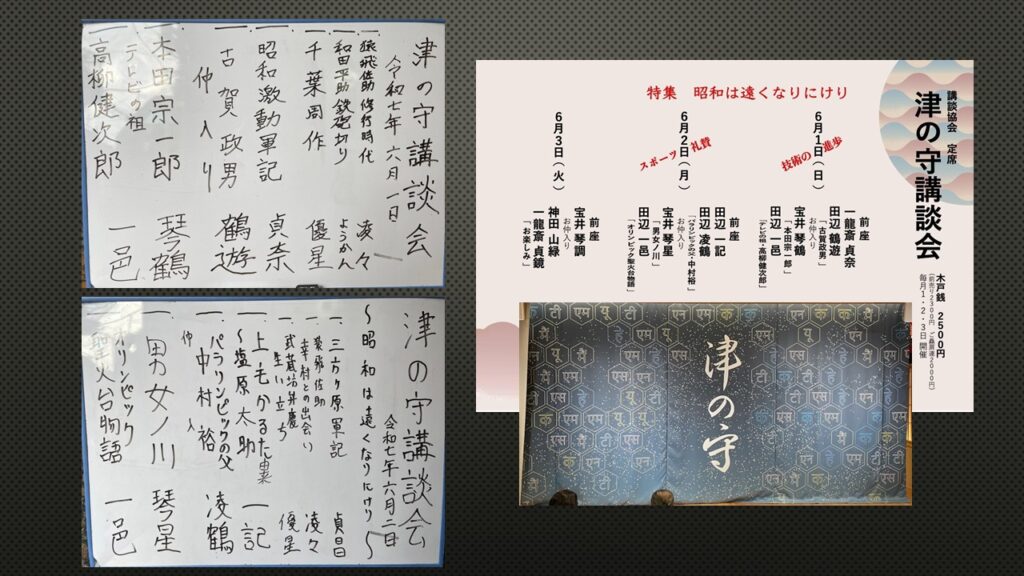 津の守講談会
令和七年 六月一日
一 猿飛佐助 修行時代 凌々
一 和田平助 鉄砲切り ようかん
一 千葉周作 優星
一 昭和激動軍記 貞奈
一 古賀政男 鶴遊
仲入り
一 本田宗一郎 琴鶴
テレビの祖
一 高柳健次郎 一邑
津の守講談会
令和七年六月二日
〜昭和は遠くなりにけり〜
一、三方ヶ原軍記 貞昌
一、猿飛佐助
幸村との出会い 凌々
一、武蔵坊弁慶
生い立ち 優星
一 上毛かるた由来
〜塩原太助 一記
一 パラリンピックの父
中村裕 凌鶴
仲入
一 男女ノ川 琴星
一 オリンピック
聖火台物語 一邑
講談協会 定席
津の守講談会
木戸銭 2500円
毎月1・2・3日 開催
特集 昭和は遠くなりにけり
6月1日(日)
技術の進歩
前座
一龍斎 貞奈
田辺 鶴遊
「古賀政男」
お仲入り
宝井 琴鶴
「本田宗一郎」
田辺 一邑
「テレビの祖・高柳健次郎」
6月2日(月)
スポーツ礼賛
前座
田辺 一記
田辺 凌鶴
「パラリンピックの父・中村裕」
お仲入り
宝井 琴星
「男女ノ川」
田辺 一邑
「オリンピック聖火台物語」
6月3日(火)
前座
宝井 琴調
お仲入り
神田 山緑
一龍斎 貞鏡
「お楽しみ」
津の守